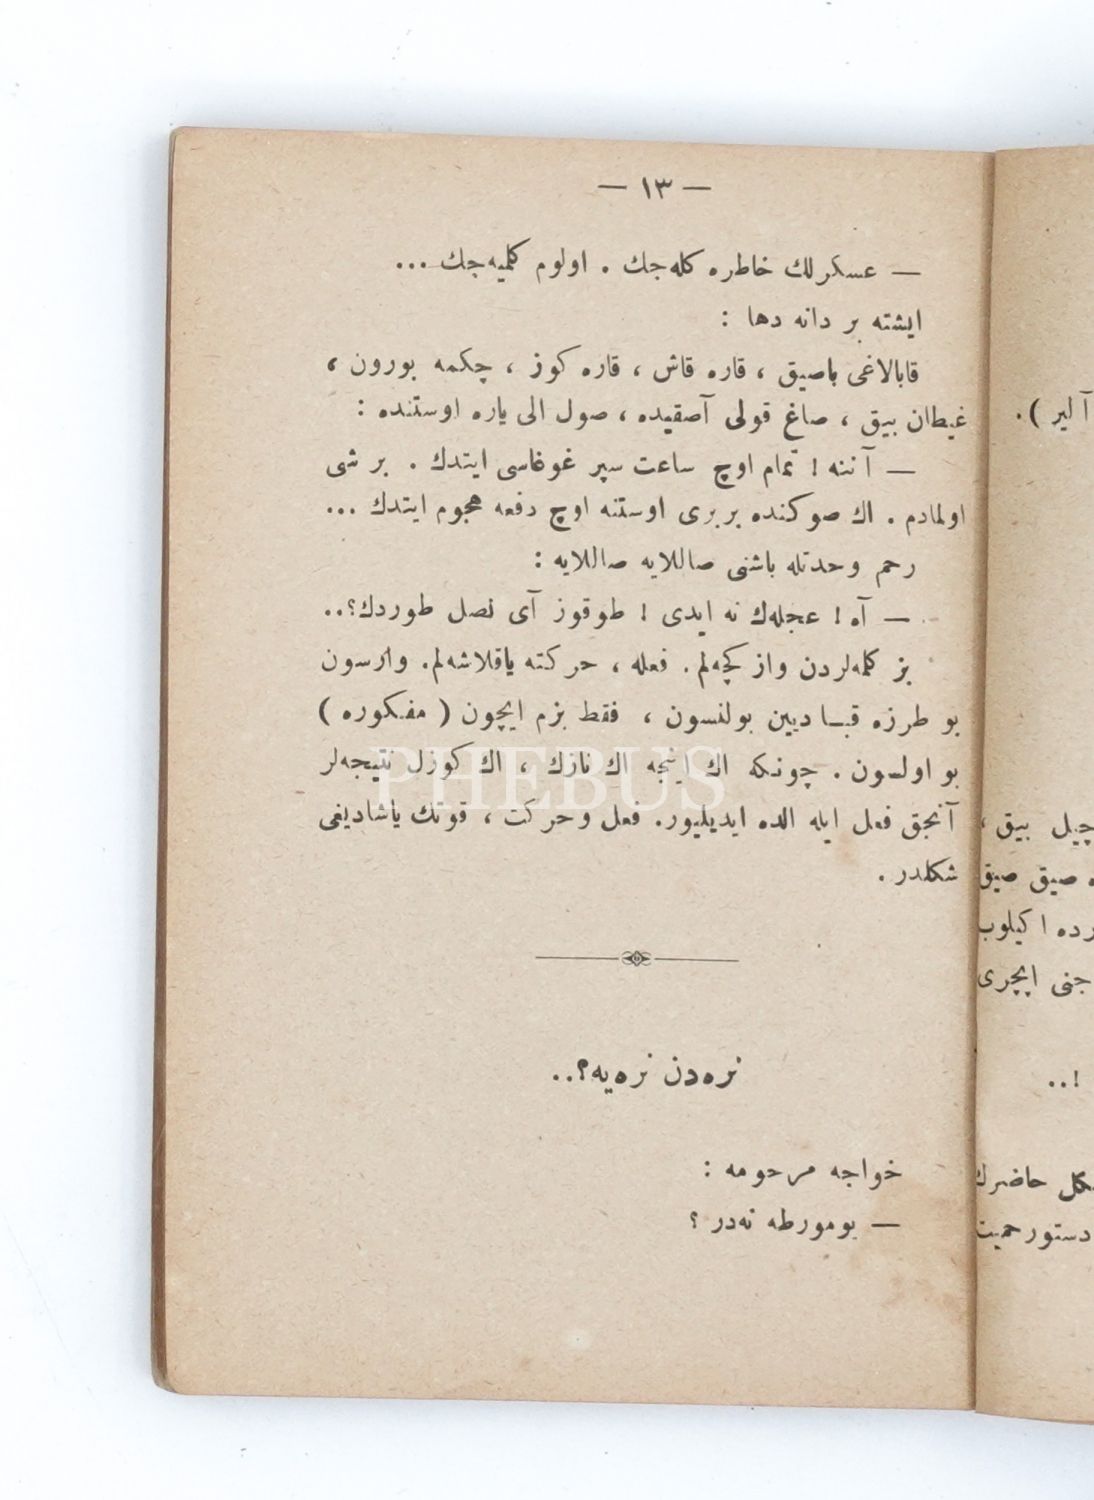 — ١٣ —
— عسكرلك خاطره كله جك . اولوم كلميه جك ...
ايشته بر دانه دها :
قابالاغى باصيق ، قاره قاش ، قاره كوز ، چكمه بورون ،
غيطان بيق ، صاغ قولى آصقيده ، صول الى ياره اوستنده :
— آننه ! تمام اوچ ساعت سپر غوغاسى ايتدك . بر شى
اولمادم . اك صوكنده بربرى اوستنه اوچ دفعه هجوم ايتدك ...
رحم وحدتله باشنى صاللايه صاللايه :
— آه ! عجله‌ك نه ايدى ! طوقوز آى نصل طوردك؟..
بز كلمه‌لردن واز كچه‌لم. فعله ، حركته ياقلاشه‌لم. وارسون
بو طرزه قبا ديين بولنسون ، فقط بزم ايچون ( مفكوره )
بو اولسون . چونكه اك اينجه اك نازك ، اك كوزل نتيجه‌لر
آنجق فعل ايله الده ايديليور. فعل وحركت ، قوتك ياشاديغى
شكلدر .
نره‌دن نره‌يه؟..
خواجه مرحومه :
— بومورطه نه‌در ؟
آلير ).
چيل بيق ،
صيق صيق
رده اكيلوب
جنى ايچرى
!..
حاضرك
دستور حميت
PHEBUS